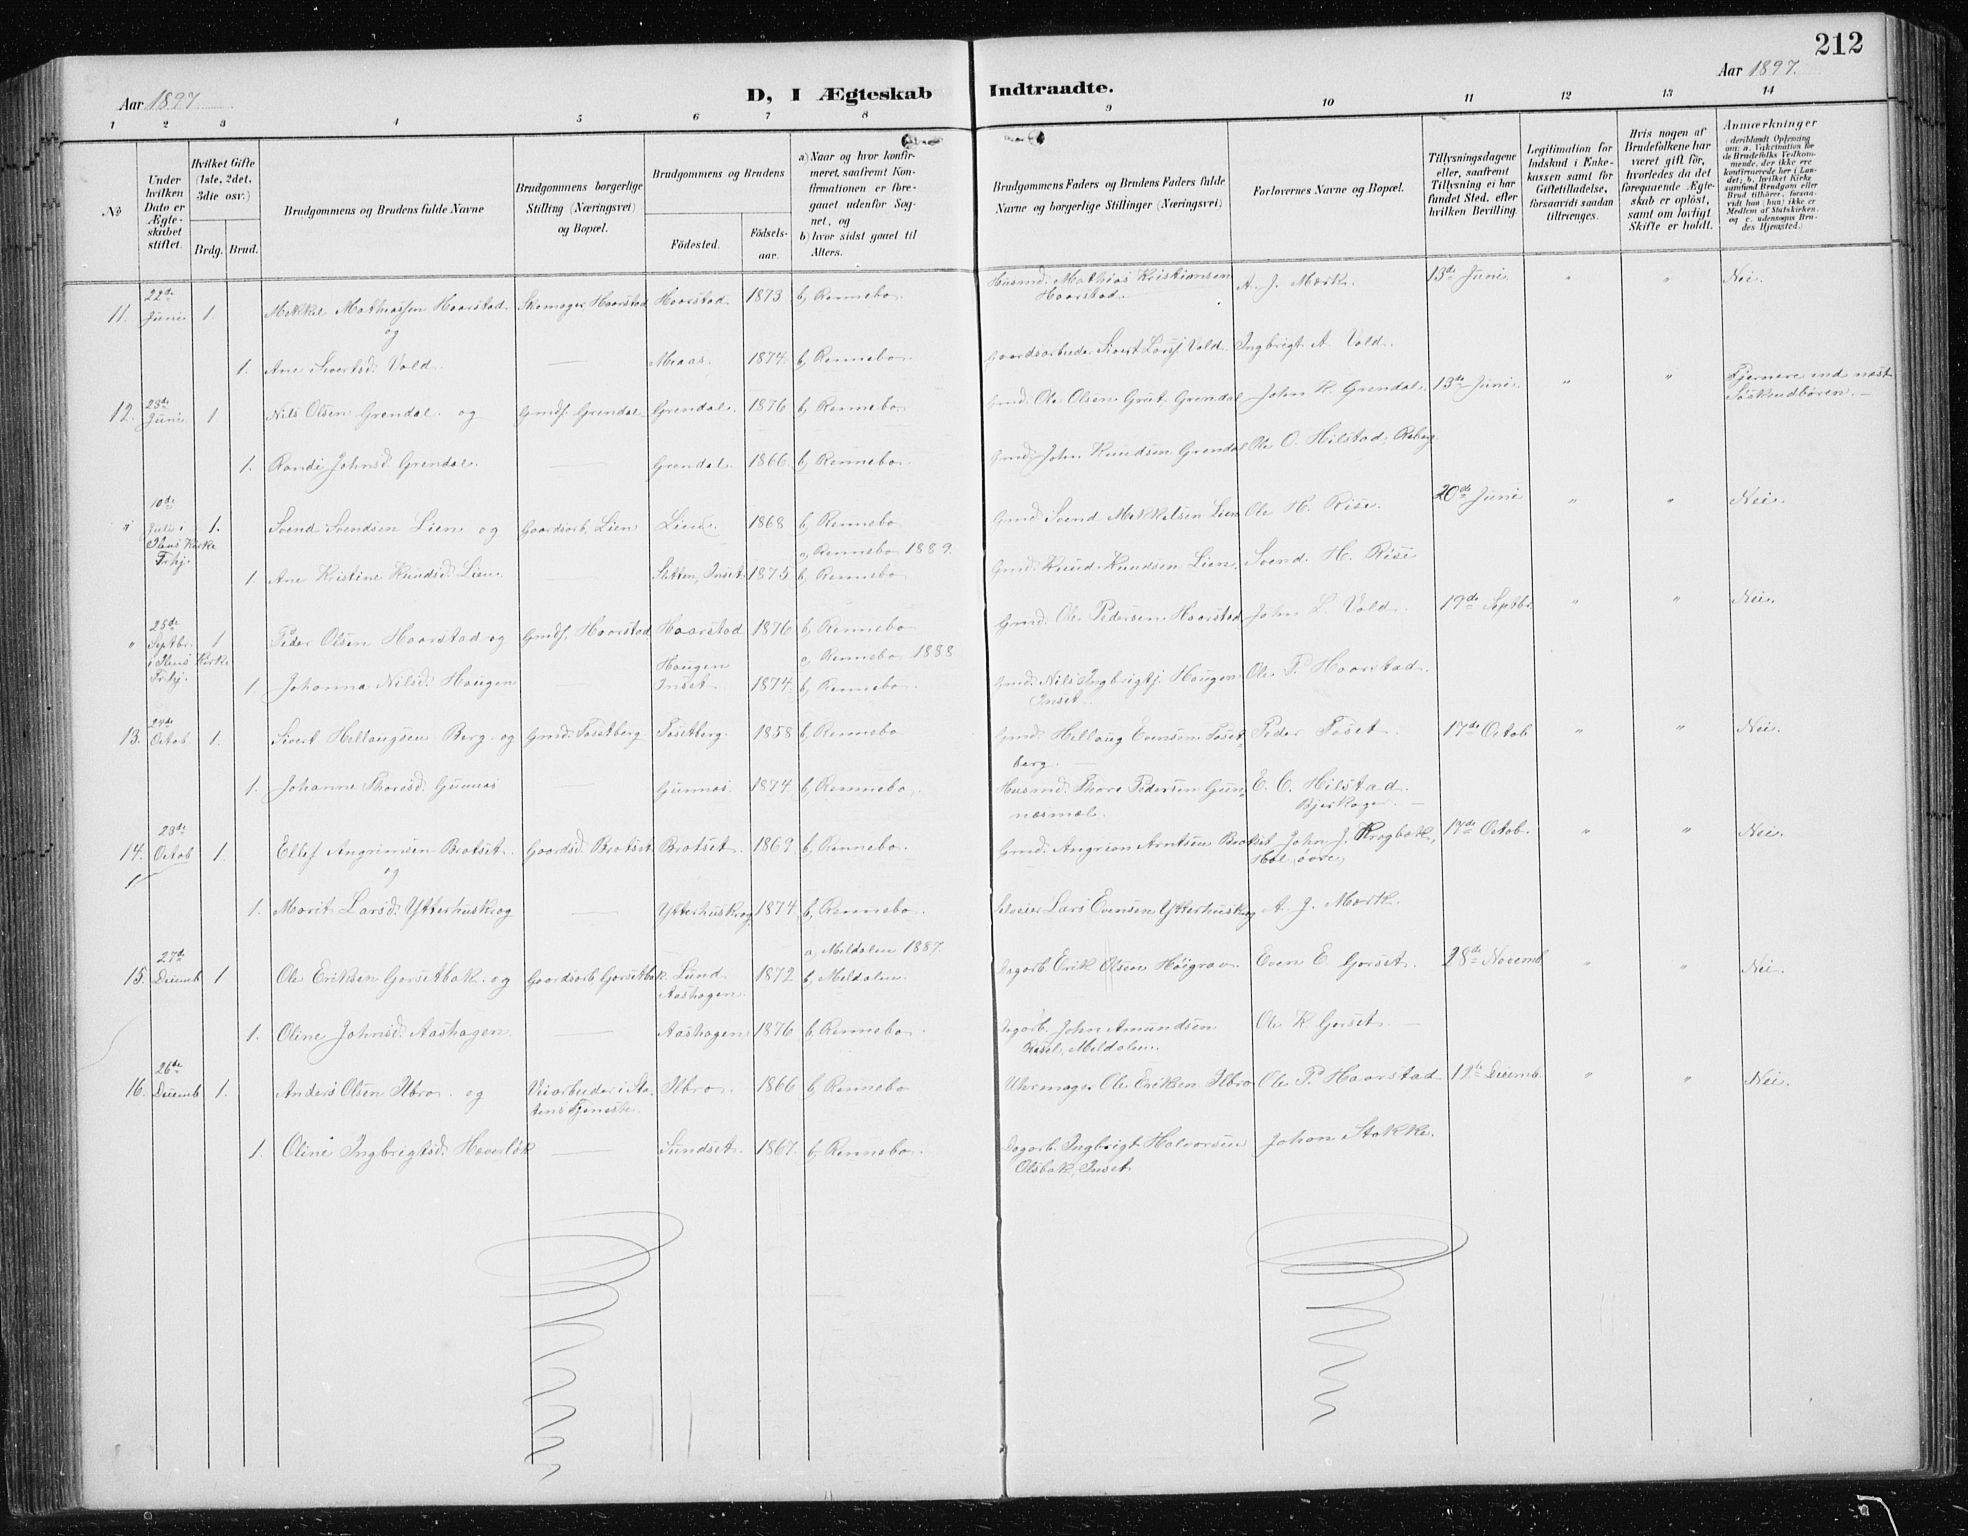 212
Aar 1897.
D, I Ægteskab Indtraadte.
Aar 1897.
1 2 3 4 5 6 7 8 9 10 11 12 13 14
No
Under hvilken Dato er Ægteskabet stiftet.
Hvilket Gifte (1ste, 2det, 3die osv.)
Brdg. Brud.
Brudgommens og Brudens fulde Navne
Brudgommens borgerlige Stilling (Næringsvei) og Bopæl.
Brudgommens og Brudens
Födested.
Födselsaar.
a) Naar og hvor konfirmeret, saafremt Konfirmationen er foregaaet udenfor Sognet, og
b) hvor sidst gaaet til Alters.
Brudgommens Faders og Brudens Faders fulde Navne og borgerlige Stillinger (Næringsvei)
Forlovernes Navne og Bopæl.
Tillysningsdagene eller, saafremt Tillysning ei har fundet Sted, efter hvilken Bevilling.
Legitimation for Indskud i Enkekassen samt for Giftetilladelse, forsaavidt saadan tiltrænges.
Hvis nogen af Brudefolkene har været gift för, hvorledes da det foregaaende Ægteskab er oplöst, samt om lovligt Skifte er holdt.
Anmærkninger
(deriblandt Oplysning om: a. Vakcination for de Brudefolks Vedkommende, der ikke ere konfirmerede her i Landet; b. hvilket Kirkesamfund Brudgom eller Brud tilhörer, forsaavidt han (hun) ikke er Medlem af Statskirken, og c. udensogns Brudes Hjemsted.)
11. 22de Juni 1. Mekkel Mathiassen Haarstad og Skomager, Haarstad Haarstad 1873 b, Rennebo Husmd. Mathias Kristiansen Haarstad. A. J. Mærk. 13de Juni. " " Nei.
1. Ane Sivertsd. Vold. — Meaas. 1874. b, Rennebo. Gaardsarbeider Sivert Larsj. Vold. Ingbrigt A. Vold.
12. 23de Juni 1 Nils Olsen Grendal og Gmdf. Grendal Grendal. 1876 b, Rennebo Gmd. Ole Olsen Grut Grendal John K. Grendal. 13de Juni. " " Fjernere end næst Söskendbören. —
1. Randi Johnsd. Grendal. — Grendal. 1866. b, Rennebo. Gmd. John Knudsen Grendal Ole O. Hilstad,
" 10de Juli i Ilens Kirke Trhj. 1. Svend Svendsen Lien og Gaardsarb. Lien Lien. 1868 b, Rennebo Gmd. Svend Mekkelsen Lien Ole H. Rise. 20de Juni " " Nei.
1 Ane Kristine Knudsd. Lien. — Sletten, Inset. 1875 a, Rennebo 1889. b, Rennebo Gmd. Knud Knudsen Lien. Svend H. Rise
" 25de Septbr. i Ilens Kirke Trhj. 1 Peder Olsen Haarstad og Gmdf. Haarstad Haarstad 1876 b, Rennebo Gmd. Ole Pedersen Haarstad John L. Vold. 19de Septbr. " " Nei.
1. Johanna Nilsd. Haugen — Haugen Inset. 1874. a, Rennebo 1888 b, Rennebo. Gmd. Nils Ingbrigtj. Haugen Inset. Ole P. Haarstad.
13. 24de Octob. 1. Sivert Hellaugsen Berg og Gmd. Tosetberg Tosetberg. 1858 b, Rennebo Gmd. Hellaug Evensen Tosetberg. — Peder Toset. 17de Octob " " Nei.
1. Johanne Thoresd. Gunnes — Gunnes. 1874 b, Rennebo. Husmd. Thore Pedersen Gunnesmæl. E. C. Hilstad Bjerkager. —
14. 23de Octob 1. Ellef Angrimsen Brotset. og Gaardsd. Brotset Brotset. 1869. b, Rennebo. Gmd. Angrim Arntsen Brotset John J. Krogbæk, Hol, övre, 17de Octob. " " Nei.
1. Marit Larsd. Ytterhuskrog — Ytterhuskrog 1874 b, Rennebo. Selveier Lars Evensen Ytterhuskrog A. J. Mærk.
15. 27de Decemb 1 Ole Eriksen Gorsetbak. og Gaardsarb. Gorsetbak. Lund Aashagen. 1872 a, Meldalen 1887. b, Meldalen. Dagarb. Erik Olsen Höigrav. Even E. Gorset. 28de Novemb " " Nei.
1. Oline Johnsd. Aashagen. — Aashagen. 1876 b, Rennebo. Dagarb. John Amundsen Meldalen. Ole K. Gorset —
16. 26de Decemb 1. Anders Olsen Ilbro. og Veiarbeider i Statens Tjeneste. Ilbro. 1866 b, Rennebo Uhrmager Ole Eriksen Ilbro Ole P. Haarstad 12te Decemb. " " Nei.
1. Oline Ingbrigtsd. Hæverlök — Sundset. 1867. b, Rennebo. Dagarb. Ingbrigt Halvorsen Olsbak, Inset. Johan Stokke.